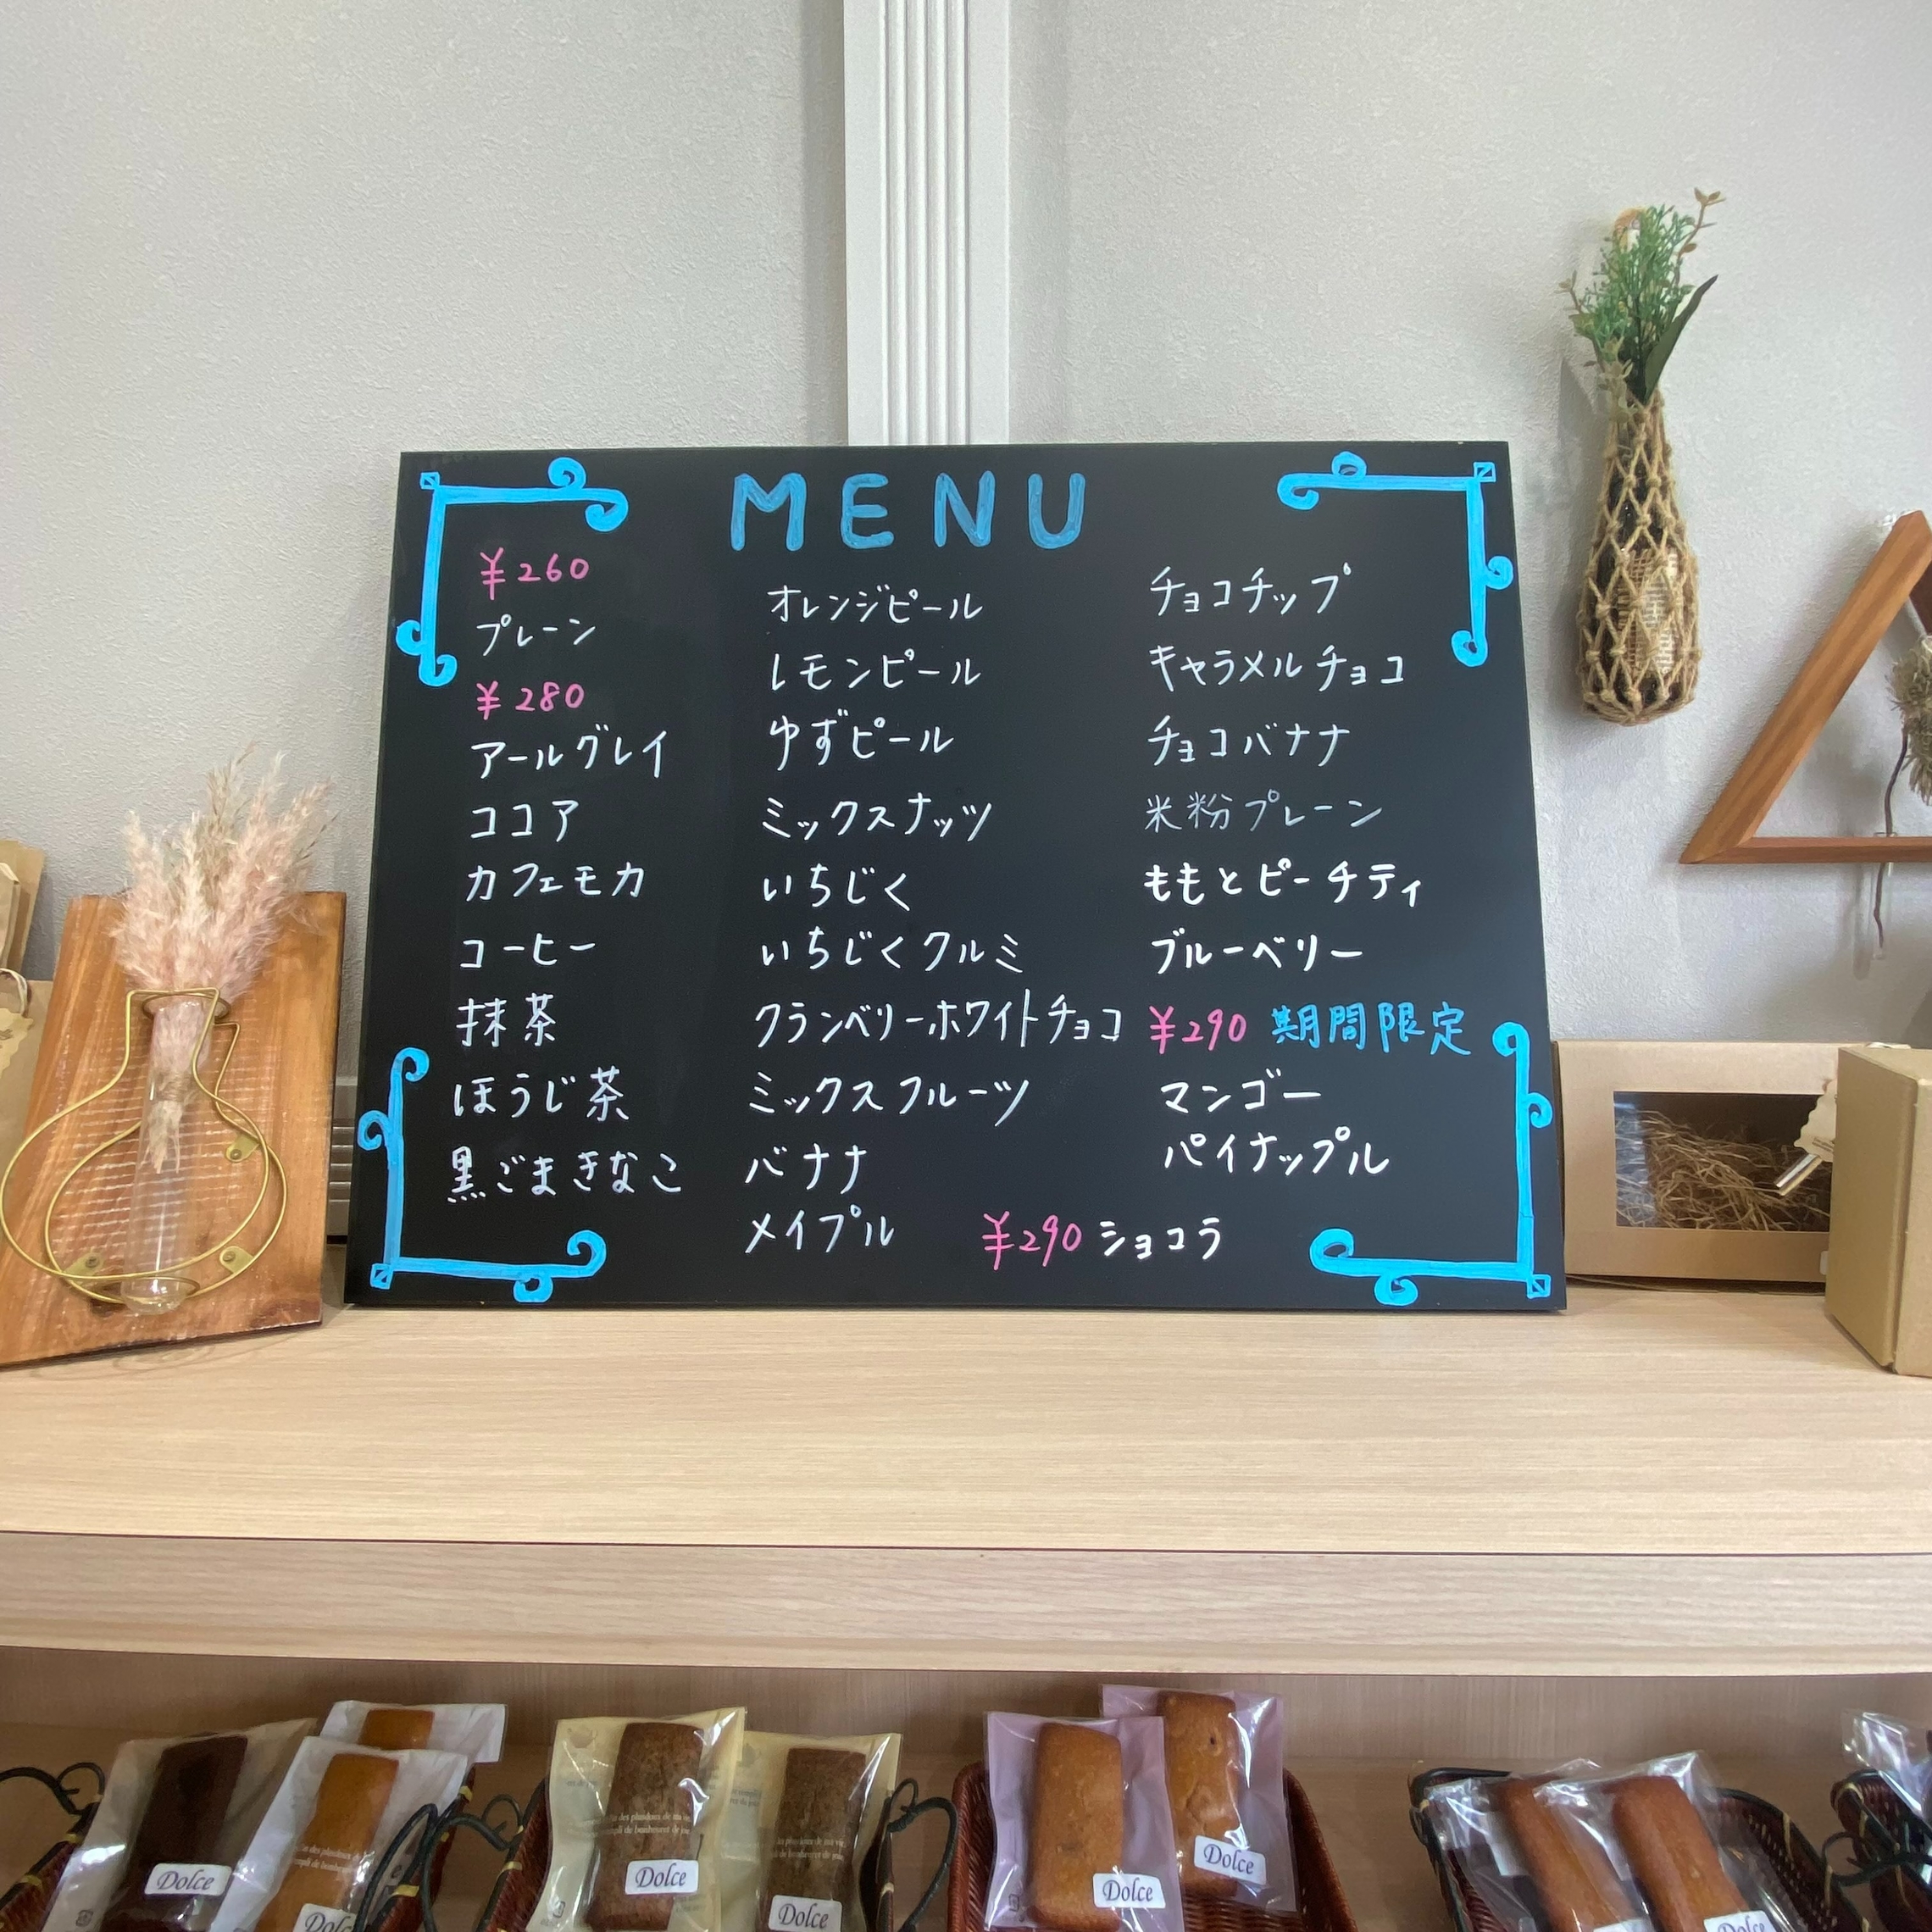 MENU
¥260
プレーン
¥280
アールグレイ
ココア
カフェモカ
コーヒー
抹茶
ほうじ茶
黒ごまきなこ
オレンジピール
レモンピール
ゆずピール
ミックスナッツ
いちじく
いちじくクルミ
クランベリーホワイトチョコ
ミックスフルーツ
バナナ
メイプル
チョコチップ
キャラメルチョコ
チョコバナナ
米粉プレーン
ももとピーチティ
ブルーベリー
¥290 期間限定
マンゴー
パイナップル
¥290 ショコラ
Dolce
Dolce
Dolce
Dolce
Dolce
Dolce